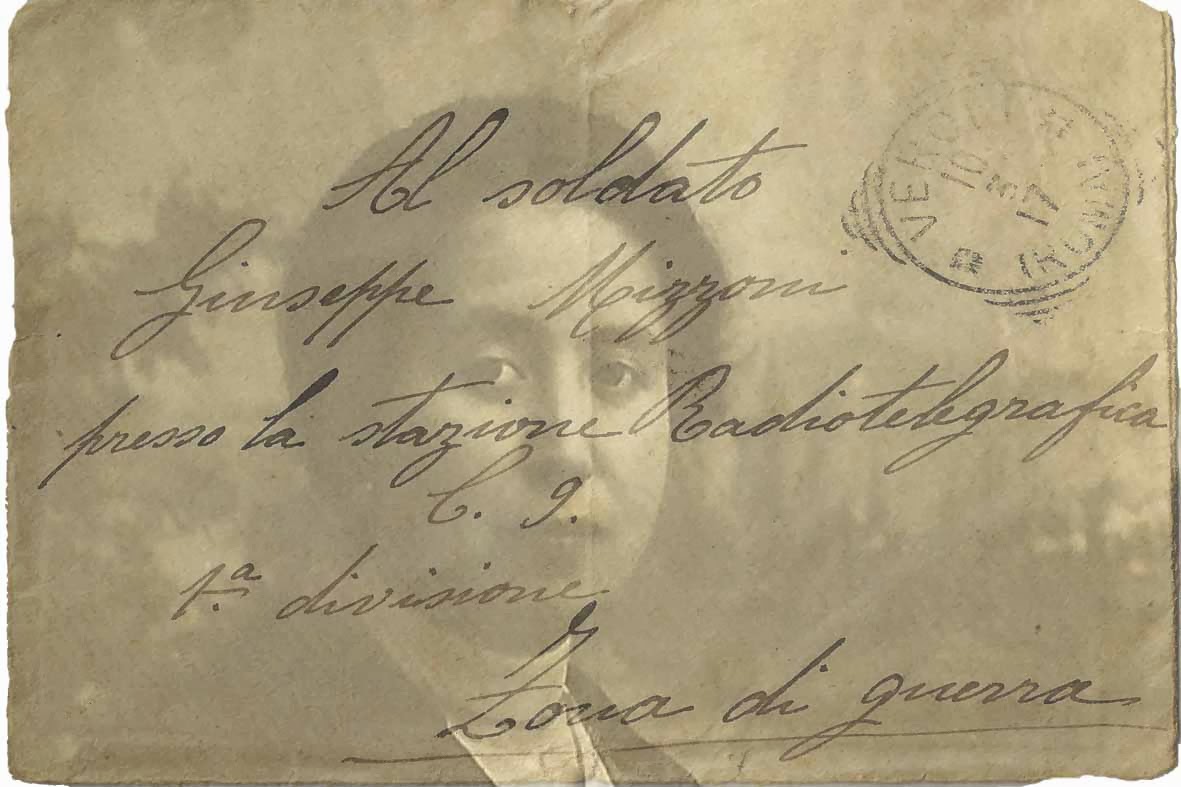 Al soldato
Giuseppe Mizzoni
presso la stazione Radiotelegrafica
C. 9.
1.ª divisione
Zona di guerra
VEROLI
ROMA
10
17